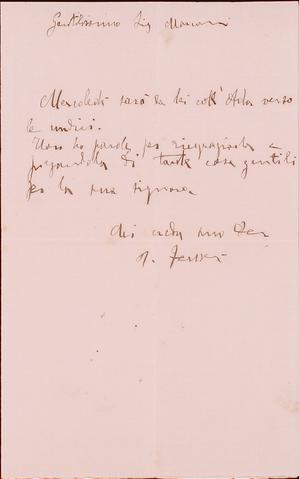 Gentilissimo Sig
Mercoledì sarò da lei coll' verso
le undici.
Non ho parole per ringraziarla e
pregandola di tante cose gentili
per la sua signora
Mi creda suo